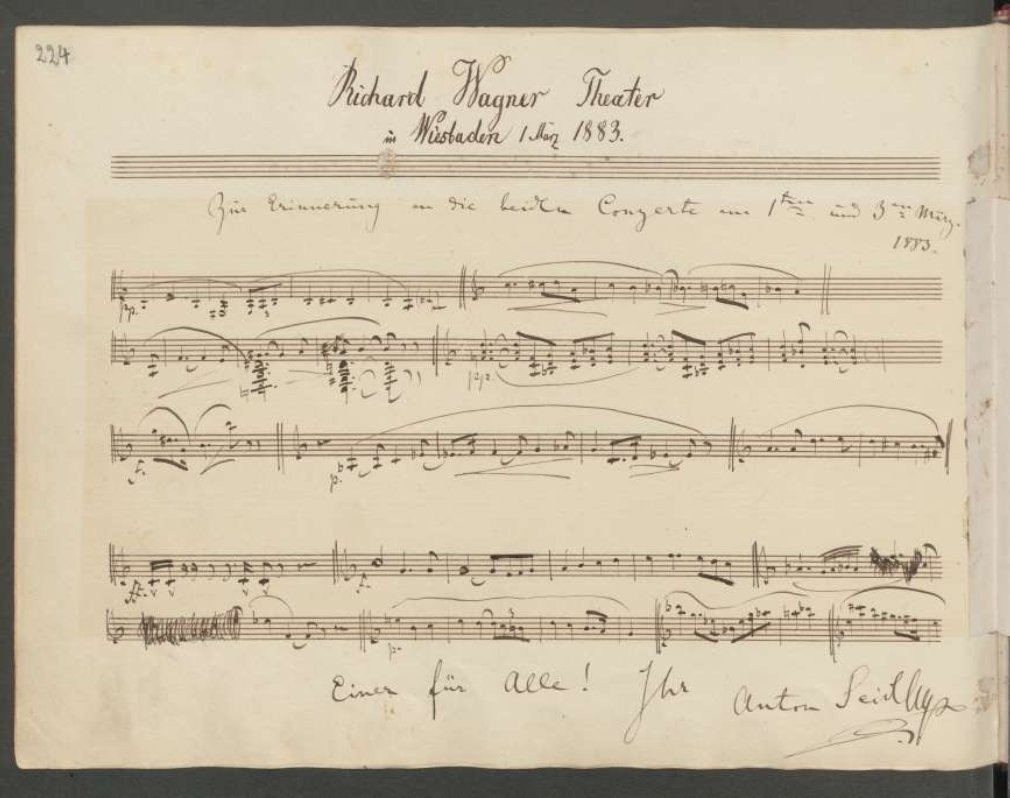 224
Richard Wagner Theater
in Wiesbaden 1 März 1883.
Zur Erinnerung an die beiden Conzerte am 1ten und 3ten März.
1883.
pp.
ppp.
f.
p.
ff.
f.
p.
Einer für Alle! Ihr Anton Seidl